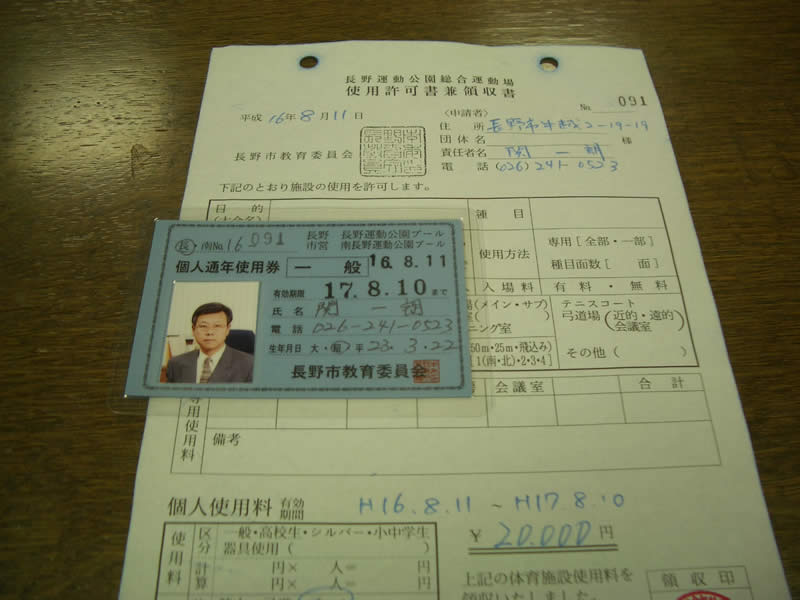 長野運動公園総合運動場
使用許可書兼領収書
No. 091
平成 16年 8月 11日
〈申請者〉
住所 長野市平越2-19-19
団体名 様
長野市教育委員会
責任者名 関 一朗
電話 (026) 241-0523
下記のとおり施設の使用を許可します。
目的
種目
使用方法
専用[全部・一部]
種目面数[ 面]
入場料
有料・無料
(メイン・サブ)
テニスコート
弓道場(近的・遠的)
会議室
ニング室
50m・25m・飛込み
1(南・北)・2・3・4]
その他( )
会議室
合計
専用使用料
備考
長・南No.16 091
長野市営 長野運動公園プール
南長野運動公園プール
個人通年使用券 一般 16.8.11
有効期限 17.8.10まで
氏名 関 一朗
電話 026-241-0523
生年月日 大・昭・平 23.3.22
長野市教育委員会
個人使用料 有効期間 H16.8.11 ~ H17.8.10
使用料
区分
一般・高校生・シルバー・小中学生
器具使用( )
¥ 20.000 円
計算
円× 人= 円
円× 人= 円
上記の体育施設使用料を
領収いたしました。
領収印